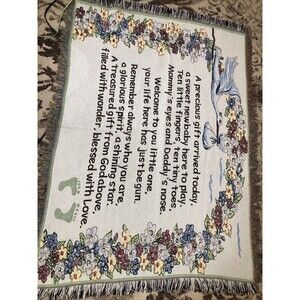 A precious gift arrived today,
a sweet newbaby here to play.
Ten little fingers, ten tiny toes,
Mommy's eyes and Daddy's nose.
Welcome to you little one,
your life here has just begun.
Remember always who you are,
a glorious spirit, a shining star.
A treasured gift from God above,
filled with wonder, blessed with Love.